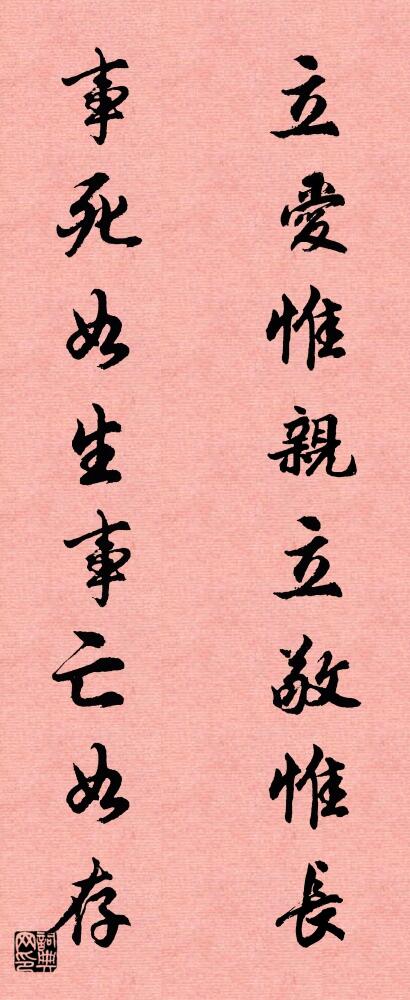 立愛惟親立敬惟長
事死如生事亡如存
詞典网印